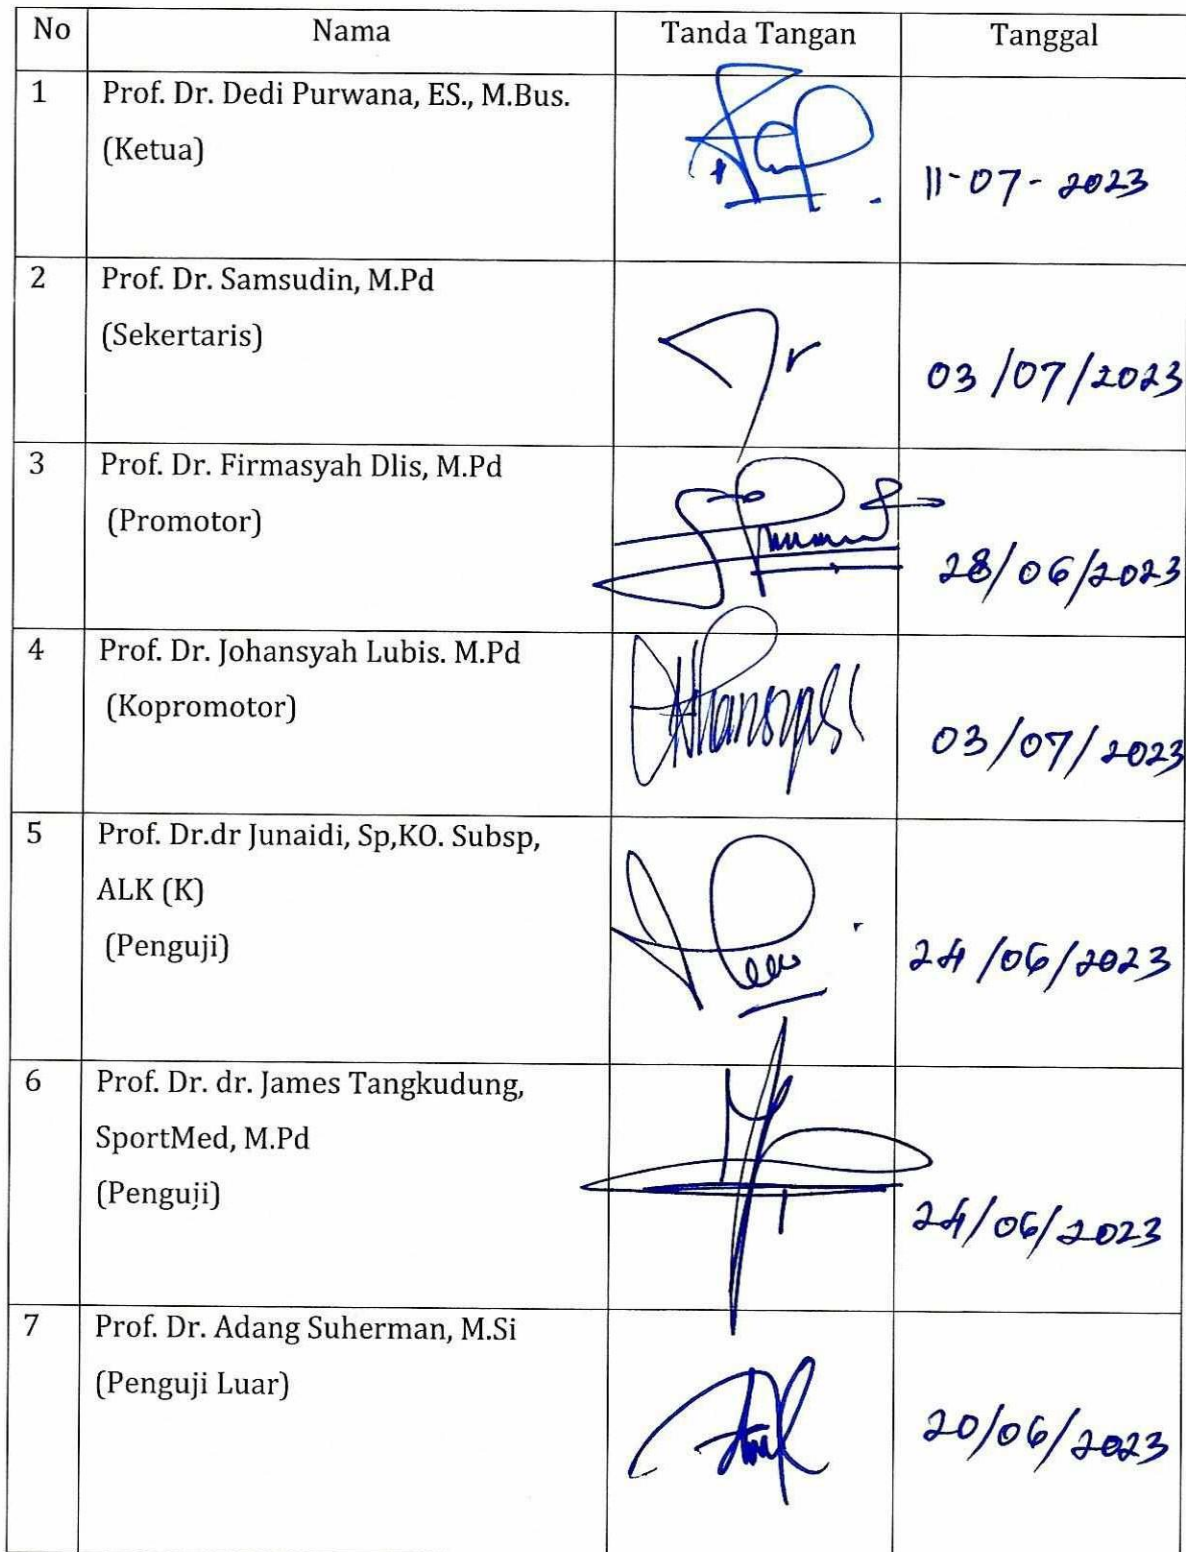 No Nama Tanda Tangan Tanggal
1 Prof. Dr. Dedi Purwana, ES., M.Bus.
(Ketua)
11-07-2023
2 Prof. Dr. Samsudin, M.Pd
(Sekertaris)
03/07/2023
3 Prof. Dr. Firmasyah Dlis, M.Pd
(Promotor)
28/06/2023
4 Prof. Dr. Johansyah Lubis. M.Pd
(Kopromotor)
03/07/2023
5 Prof. Dr.dr Junaidi, Sp,KO. Subsp,
ALK (K)
(Penguji)
24/06/2023
6 Prof. Dr. dr. James Tangkudung,
SportMed, M.Pd
(Penguji)
24/06/2023
7 Prof. Dr. Adang Suherman, M.Si
(Penguji Luar)
20/06/2023